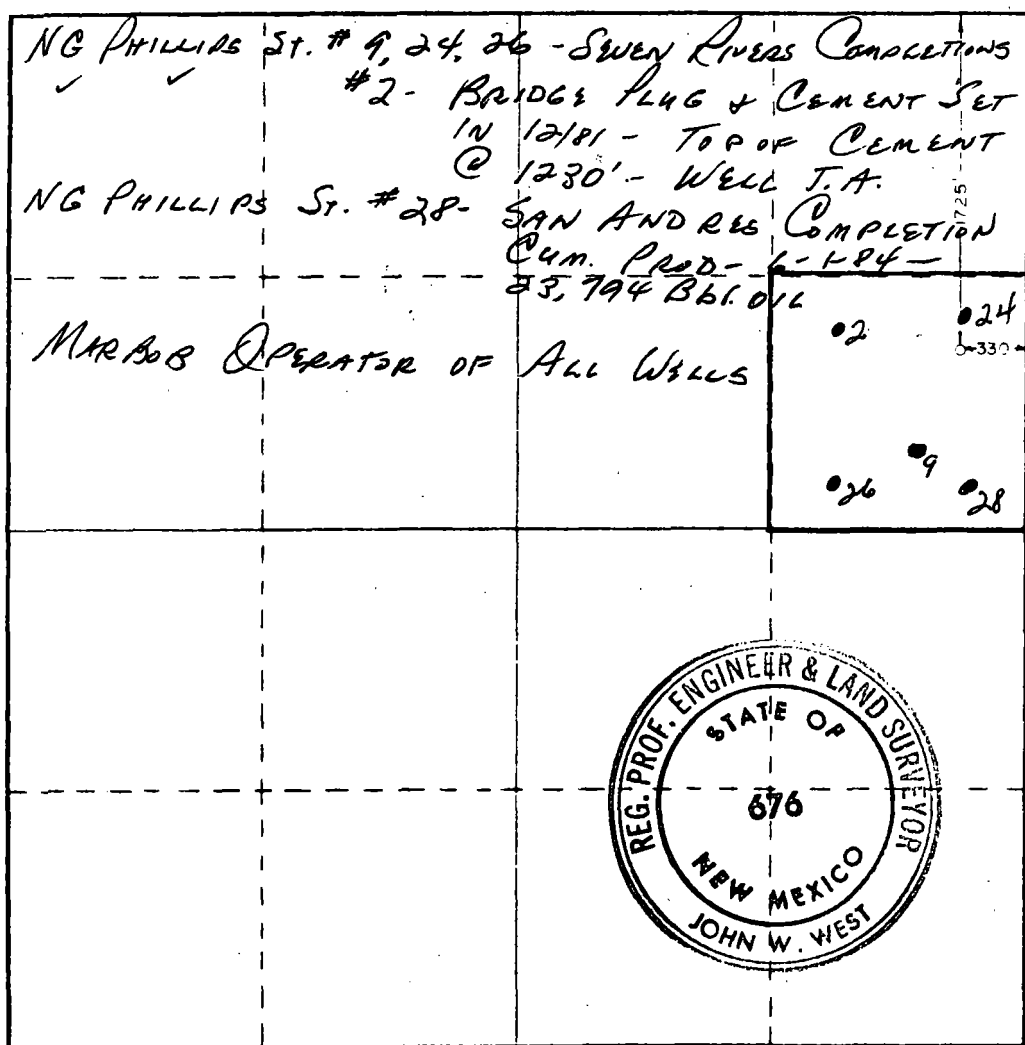 NG PHILLIPS ST. # 9, 24, 26 - SEVEN RIVERS COMPLETIONS
✓ ✓
#2 - BRIDGE PLUG & CEMENT SET
IN 12/81 - TOP OF CEMENT
@ 1230' - WELL T.A.
NG PHILLIPS ST. #28 - SAN ANDRES COMPLETION
CUM. PROD - 6-1-84 -
23,794 BBL. OIL
1725'
MARBOB OPERATOR OF ALL WELLS
2
24
330
9
26
28
REG. PROF. ENGINEER & LAND SURVEYOR
STATE OF
676
NEW MEXICO
JOHN W. WEST